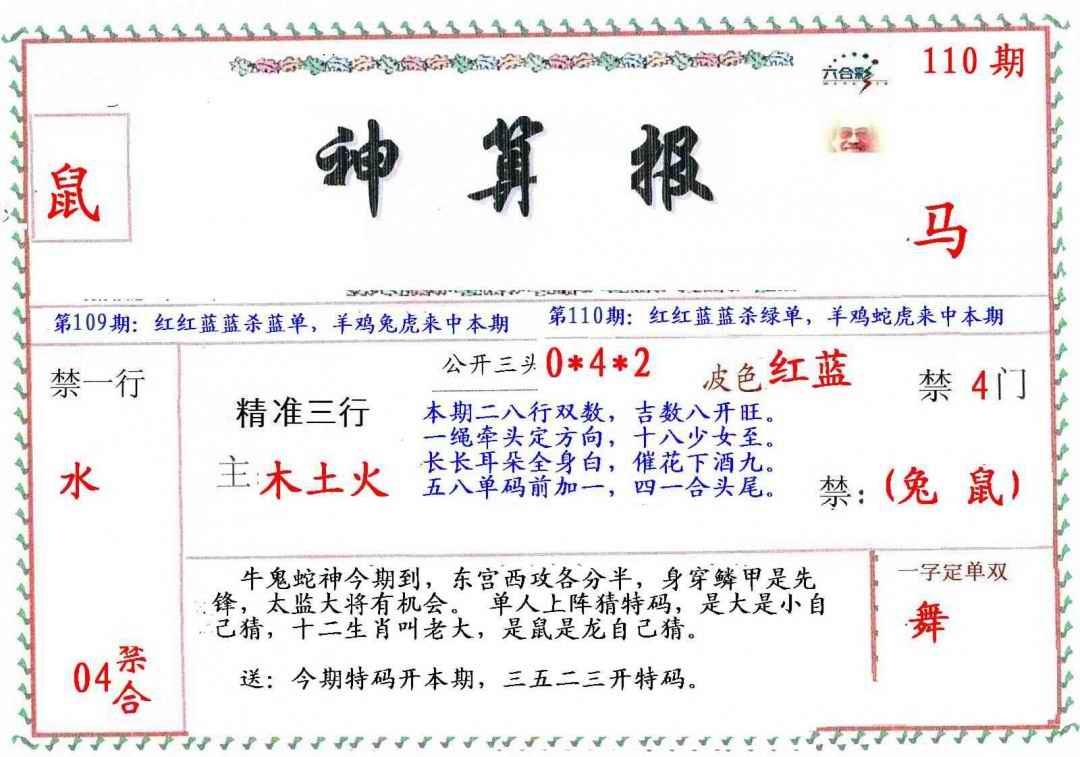 110期
六合彩
神算报
鼠
马
第109期：红红蓝蓝杀蓝单，羊鸡兔虎来中本期
第110期：红红蓝蓝杀绿单，羊鸡蛇虎来中本期
禁一行
水
04禁合
精准三行
主：木土火
公开三头 0*4*2
波色 红蓝
本期二八行双数，吉数八开旺。
一绳牵头定方向，十八少女至。
长长耳朵全身白，催花下酒九。
五八单码前加一，四一合头尾。
禁 4门
禁：(兔 鼠)
牛鬼蛇神今期到，东宫西攻各分半，身穿鳞甲是先
锋，太监大将有机会。 单人上阵猜特码，是大是小自
己猜，十二生肖叫老大，是鼠是龙自己猜。
送：今期特码开本期，三五二三开特码。
一字定单双
舞